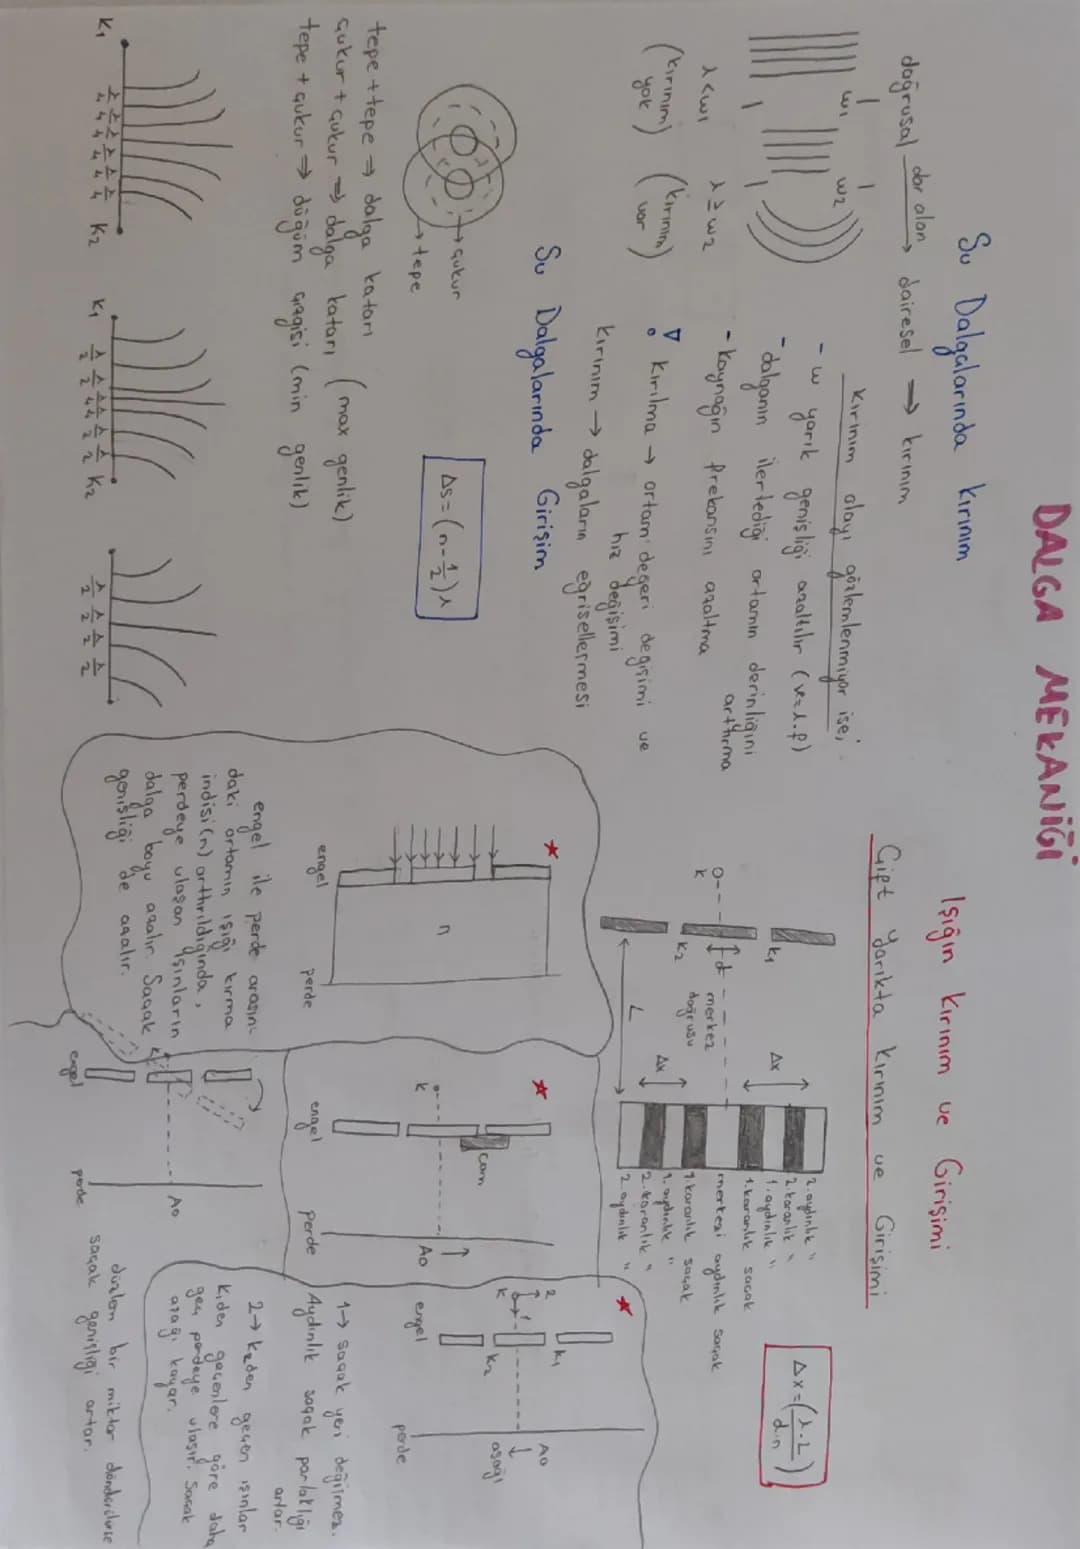 DALGA MEKANİĞİ
Su Dalgalarında Kırınım
doğrusal dar alan → dairesel → kırınım
w1 w2
λ<w1 λ≥w2
(kırınım yok) (kırınım var)
Kırınım olayı gözlemlenmiyor ise;
- w yarık genişliği azaltılır (v=λ.f)
- dalganın ilerlediği ortamın derinliğini arttırma
- kaynağın frekansını azaltma
Kırılma → ortam değeri değişimi ve
hız değişimi
kırınım → dalgaların eğriselleşmesi
Su Dalgalarında Girişim
çukur
tepe
Δs=(n-1/2)λ
tepe+tepe → dalga katarı
çukur+çukur → dalga katarı (max genlik)
tepe+çukur → düğüm çizgisi (min genlik)
K1 λ/4 λ/4 λ/4 λ/4 λ/4 λ/4 K2
K1 λ/2 λ/2 λ/4 λ/4 λ/2 λ/2 K2
λ/2 λ/2 λ/2 λ/2
Işığın Kırınım ve Girişimi
Çift Yarıkta Kırınım ve Girişimi
Δx=(λ.L/d.n)
k1
k d merkez doğrusu
k2
L
Δx
Δx
2. aydınlık "
2. karanlık "
1. aydınlık "
1. karanlık saçak
merkezi aydınlık saçak
1. karanlık saçak
1. aydınlık "
2. karanlık "
2. aydınlık "
n
engel perde
engel ile perde arasın-
daki ortamın ışığı kırma
indisi (n) arttırıldığında,
perdeye ulaşan ışınların
dalga boyu azalır. Saçak
genişliği de azalır.
cam
k A0
engel perde
2 k1
k 1 A0
k2 aşağı
engel perde
1→ saçak yeri değişmez.
Aydınlık saçak parlaklığı
artar.
2→ k2den geçen ışınlar
k1den geçenlere göre daha
geç perdeye ulaşır. Saçak
aşağı kayar.
k A0
engel perde
düzlem bir miktar döndürülürse
saçak genişliği artar.